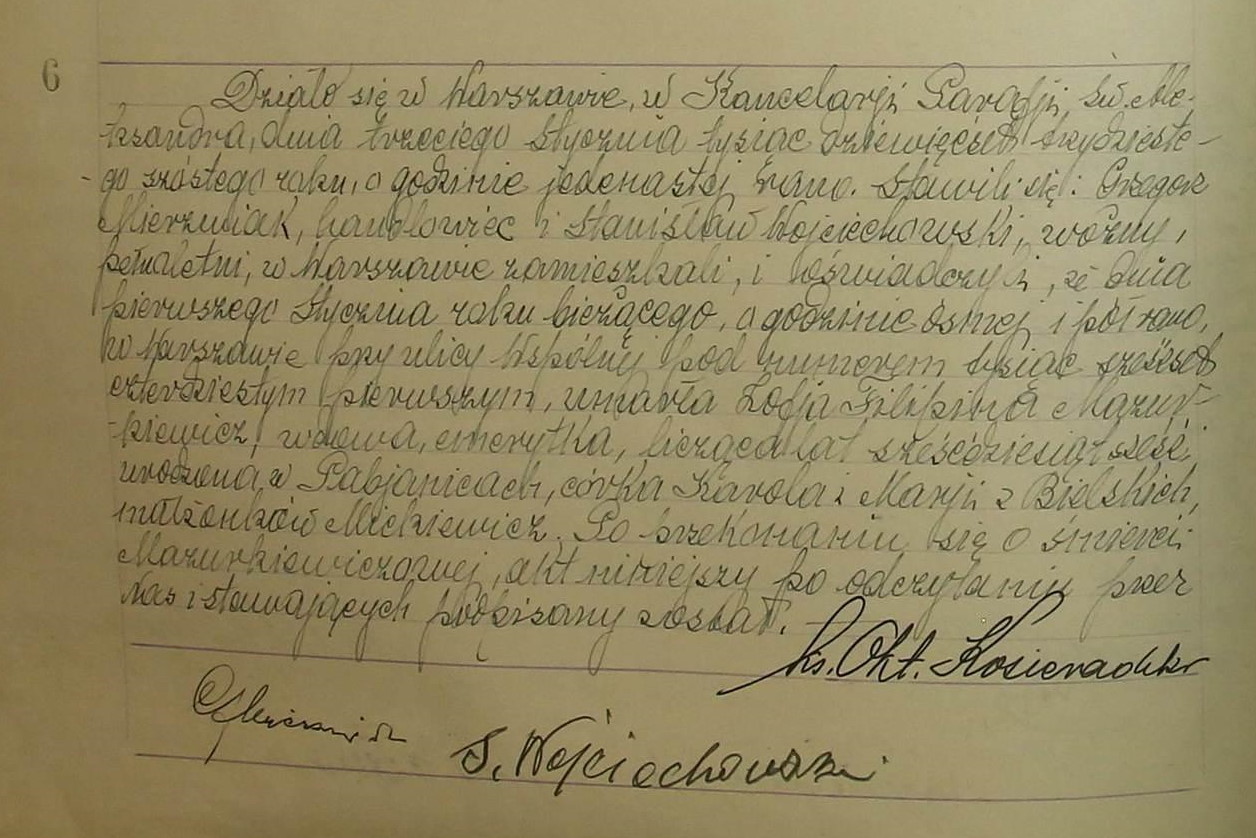 6
Działo się w Warszawie, w Kancelarji Parafji św. Ale-
ksandra, dnia trzeciego stycznia tysiąc dziewięćset trzydzieste-
-go szóstego roku, o godzinie jedenastej rano. Stawili się: Grzegorz
Mierzwiak, handlowiec i Stanisław Wojciechowski, woźny,
pełnoletni, w Warszawie zamieszkali, i oświadczyli, że dnia
pierwszego stycznia roku bieżącego, o godzinie ósmej i pół rano,
w Warszawie przy ulicy Wspólnej pod numerem tysiąc sześćset
czterdziestym pierwszym, umarła Zofja Filipina Mazur-
-kiewicz, wdowa, emerytka, licząca lat sześćdziesiąt sześć,
urodzona w Pabjanicach, córka Karola i Marji z Bielskich,
małżonków Mickiewicz. Po przekonaniu się o śmierci
Mazurkiewiczowej, akt niniejszy po odczytaniu przez
Nas i stawających podpisany został.
ks. Okt. Kosieradzki
GMierzwiak
S. Wojciechowski